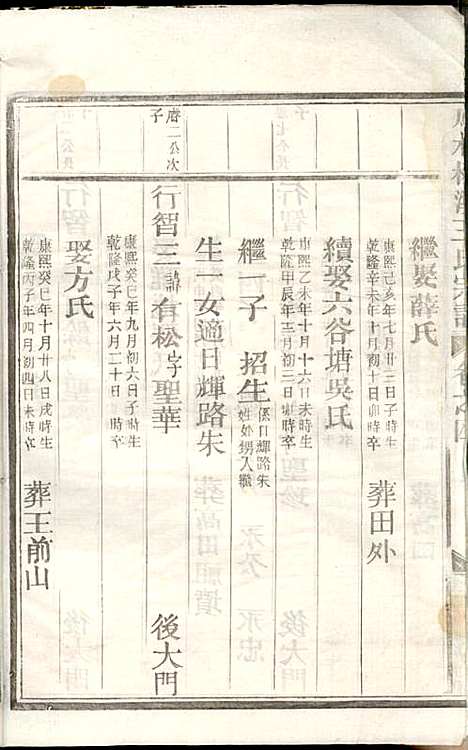 繼娶薛氏
康熙己亥年七月廿三日子時生
乾隆辛未年十月初十日卯時卒
葬田外
續娶六谷塘吳氏
康熙乙未年十月十六日未時生
乾隆甲辰年三月初三日卯時卒
繼一子 招生
係日輝路朱
姓外甥入繼
生一女適日輝路朱
唐二公次
子
行智三 諱有松字聖華 後大門
康熙癸巳年九月初六日子時生
乾隆戊子年六月二十日 時卒
娶方氏
康熙癸巳年十月廿八日戌時生
乾隆丙子年四月初四日未時卒
葬王前山